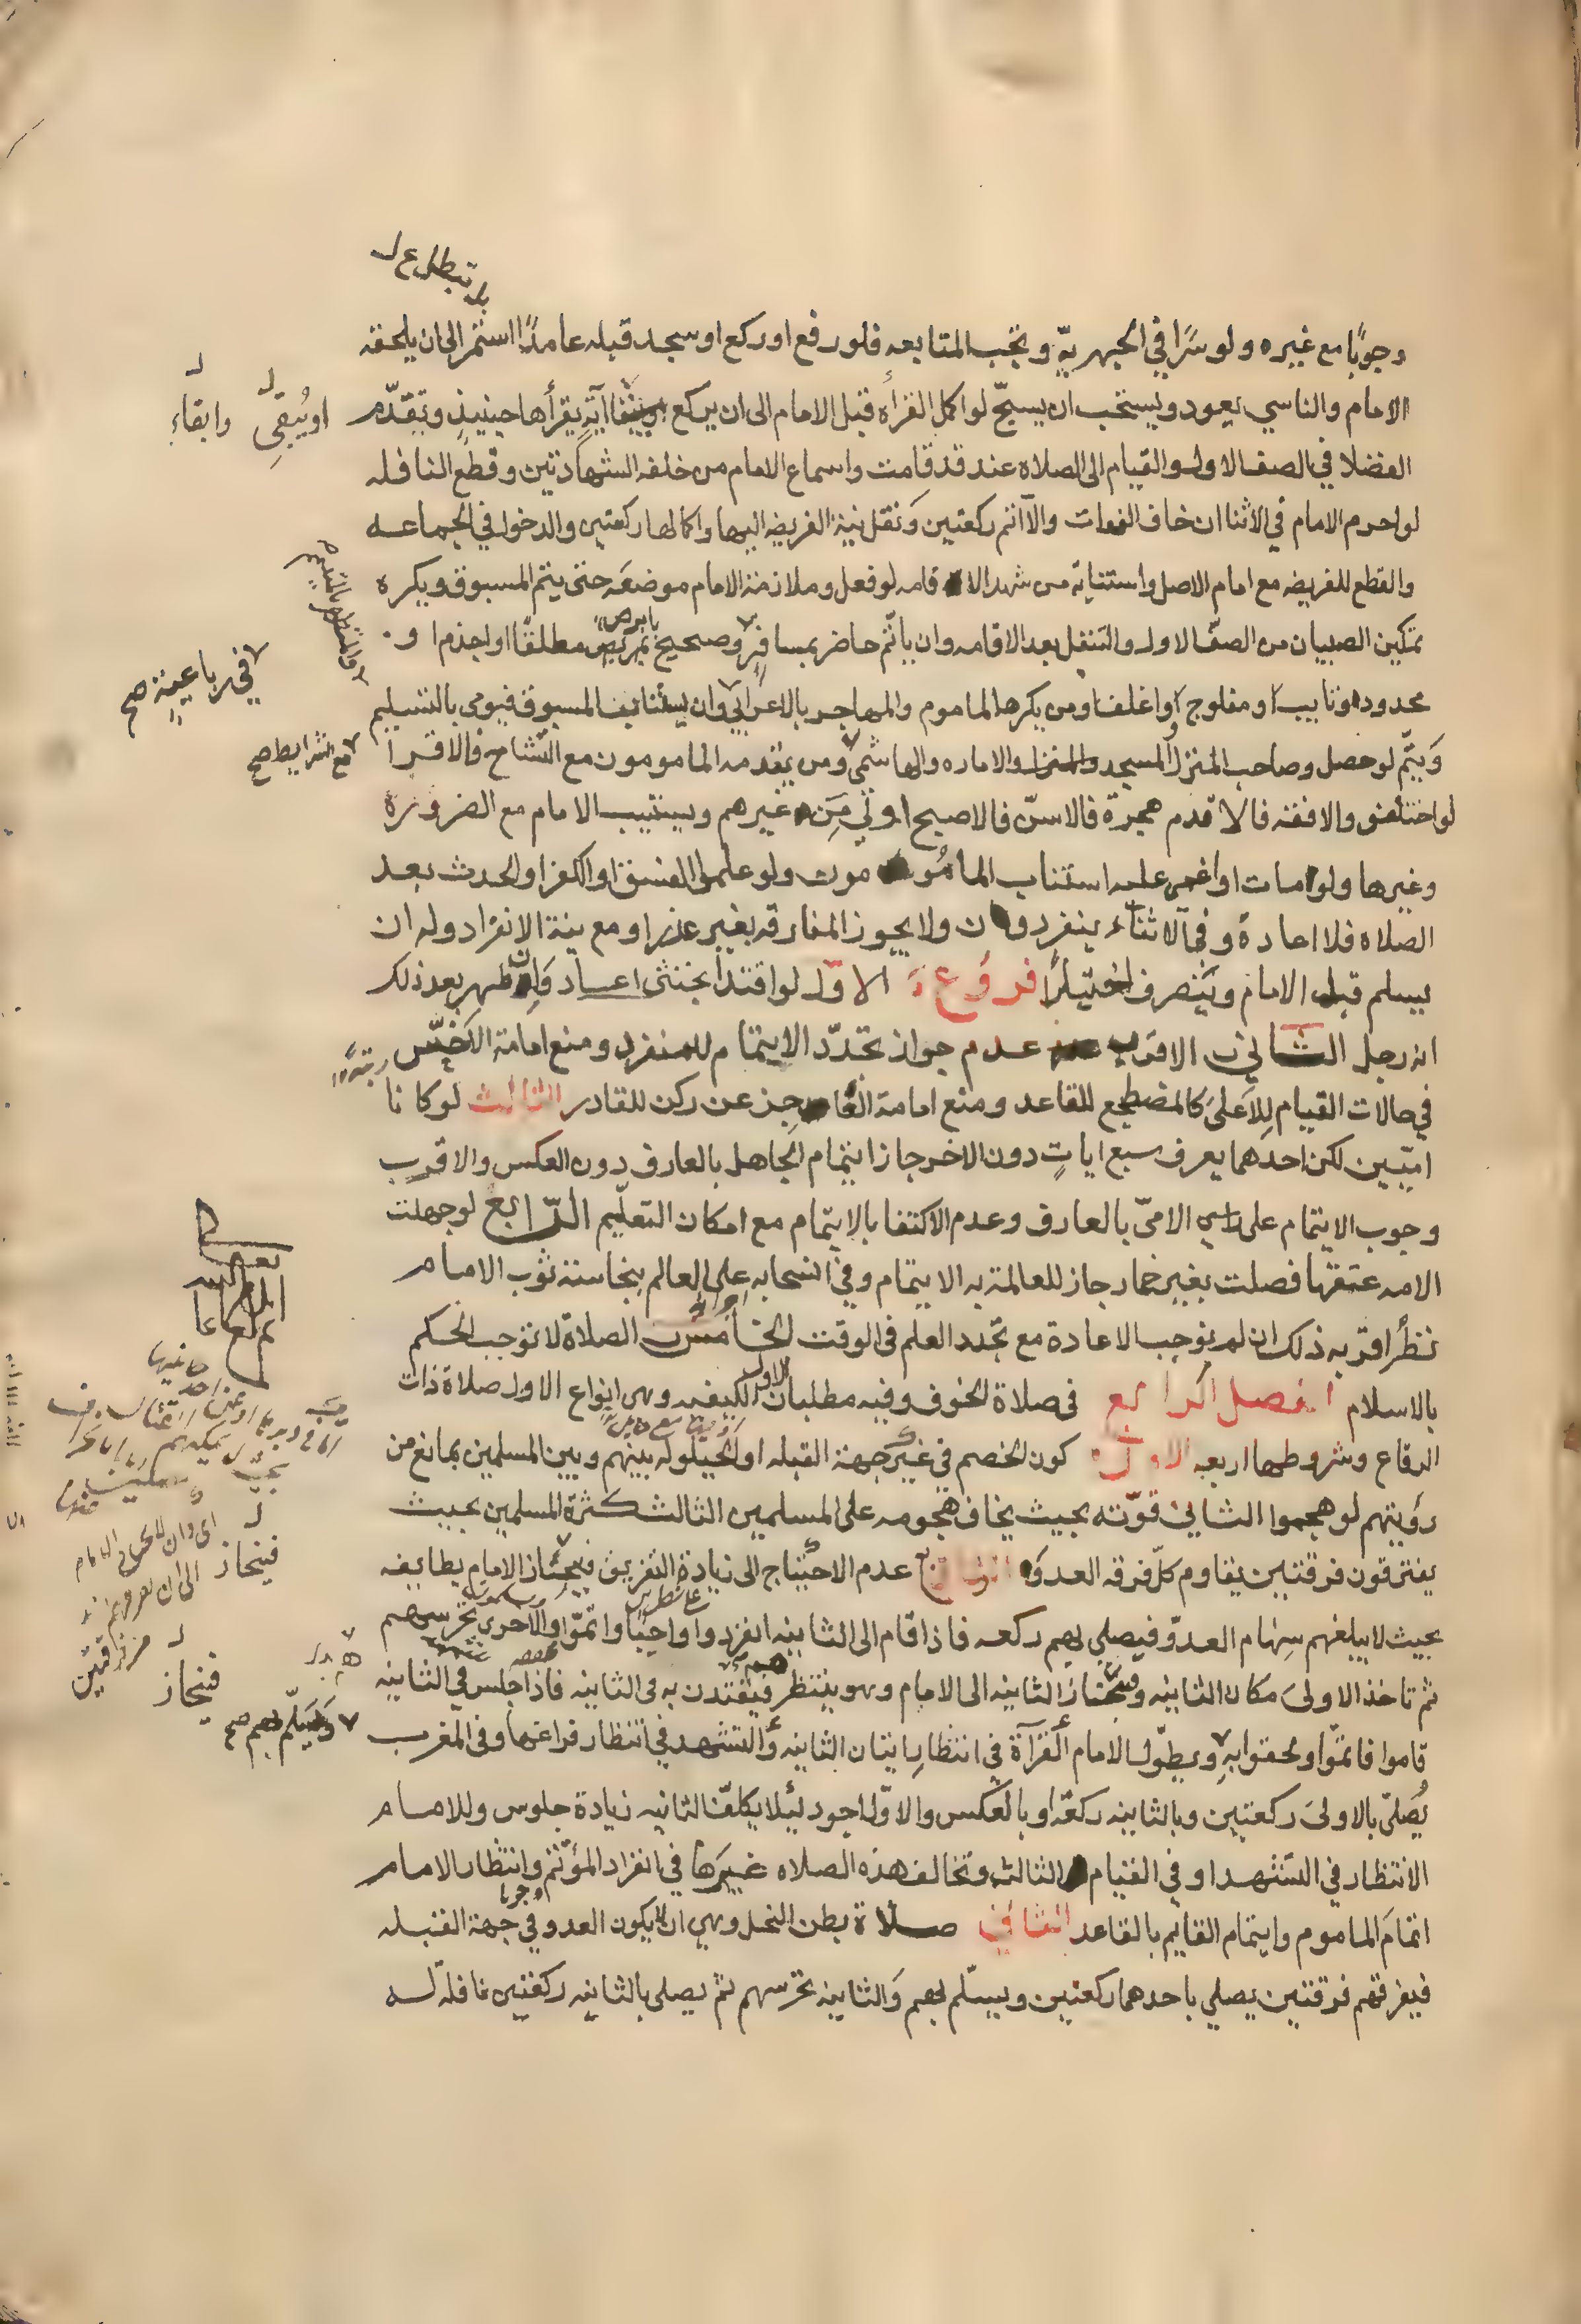 بل تبطل ع ل
وجوبًا مع غيره ولو سرًا في الجهرية وتجب المتابعه فلو رفع او ركع او سجد قبله عامدًا استمر الى ان يلحقه
الامام والناسي يعود ويستحب ان يسبح لو اكمل القراة قبل الامام الى ان يركع وبيقا آيةٍ يقرأها حينيذٍ وتقدّم
او يُبقي
وابقاء
الفضلا في الصف الاول والقيام الى الصلاه عند قد قامت واسماع الامام من خلفه الشهادتين وقطع النافله
لو احرم الامام في الاثنا ان خاف الفوات والا اتم ركعتين ونقل نية الفريضه اليها واكمالها ركعتين والدخول في الجماعه
والقطع للفريضه مع امام الاصل واستنابة من شهد الاقامه لو فعل وملازمة الامام موضعه حتى يتم المسبوق ويكره
تمكين الصبيان من الصف الاول والتنفل بعد الاقامه وان ياتم حاضر بمسافرٍ وصحيح بابرص مطلقًا او اجذم او
في رباعيةٍ صح
محدود تايب او مفلوج او اغلف ومن يكرهه الماموم والمهاجر بالاعرابي وان يستناب المسبوق فيومي بالتسليم
ويتم لو حصل وصاحب المنزل والمسجد والاماره والهاشمي ومن يقدمه المامومون مع التشاح فالاقرا
مع الشرايط صح
لو اختلفو فالافقه فالاقدم هجرة فالاسنّ فالاصبح اولى من غيرهم ويستنيب الامام مع الضرورة
وغيرها ولو مات او اغمي عليه استناب المامومون ولو علموا الفسق او الكفر او الحدث بعد
الصلاه فلا اعادة وفي الاثناء ينفردون ولا يجوز المفارقه بغير عذر او مع نية الانفراد وله ان
يسلم قبل الامام وينصرف اختيارًا فروع الاول لو اقتدا بخنثى اعاد وان ظهر بعد ذلك
انه رجل الثاني الاقرب عدم جواز تجدّد الايتمام للمنفرد ومنع امامة الاخسّ
رتبةً
في حالات القيام للاعلى كالمضطجع للقاعد ومنع امامة العاجز عن ركن للقادر الثالث لو كانا
اميّين لكن احدهما يعرف سبع اياتٍ دون الاخر جاز ايتمام الجاهل بالعارف دون العكس والاقرب
وجوب الايتمام على الاميّ بالعارف وعدم الاكتفا بالايتمام مع امكان التعلّيم الرّابع لو جهلت
الامه عتقها فصلت بغير خمار جاز للعالمة به الايتمام وفي انسحابه على العالم بنجاسة ثوب الامام
نظر اقربه ذلك ان لم نوجب الاعادة مع تجدد العلم في الوقت الخامس الصلاة لا توجب الحكم
بالاسلام الفصل الرابع في صلاة الخوف وفيه مطلبان الاول الكيفيه وهي انواع الاول صلاة ذات
الرقاع وشروطها اربعه الاول كون الخصم في غير جهة القبله او الحيلوله بينهم وبين المسلمين بمانع من
رؤيتهم لو هجموا الثاني قوّته بحيث يخاف هجومه على المسلمين الثالث كثرة المسلمين بحيث
يفترقون فرقتين يقاوم كلّ فرقه العدو الرابع عدم الاحتياج الى زيادة التفريق فينحاز الامام بطايفه
فينحاز
بحيث لا يبلغهم سهام العدوّ فيصلي بهم ركعه فاذا قام الى الثانيه انفردوا واجبًا واتمّوا والاخرى تحرسهم
ثم تاخذ الاولى مكان الثانيه وتنحاز الثانيه الى الامام وهو ينتظرهم فيقتدون به في الثانيه فاذا جلس في الثانيه
فينحاز
قاموا فاتمّوا ولحقوا به ويطوّل الامام القرآة في انتظار اتيان الثانيه والتشهد في انتظار فراغها وفي المغرب
ويسلّم بهم صح
يُصلّي بالاولى ركعتين وبالثانيه ركعةً او بالعكس والاوّل اجود ليلا يكلّف الثانيه زيادة جلوس وللامام
الانتظار في التشهد او في القيام الثالث وتخالف هذه الصلاه غيرها في انفراد المؤتم وانتظار الامام
وجوبا
اتمامَ الماموم وايتمام القايم بالقاعد الثاني صلاة بطن النخل وهي ان لا يكون العدو في جهة القبله
فيفرقهم فرقتين يصلي باحدهما ركعتين ويسلّم بهم والثانيه تحرسهم ثم يصلي بالثانيه ركعتين نافلة له